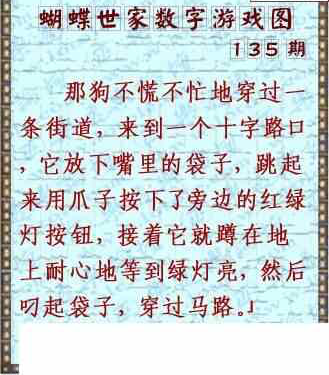 蝴蝶世家数字游戏图
135期
那狗不慌不忙地穿过一
条街道，来到一个十字路口
，它放下嘴里的袋子，跳起
来用爪子按下了旁边的红绿
灯按钮，接着它就蹲在地
上耐心地等到绿灯亮，然后
叼起袋子，穿过马路。」